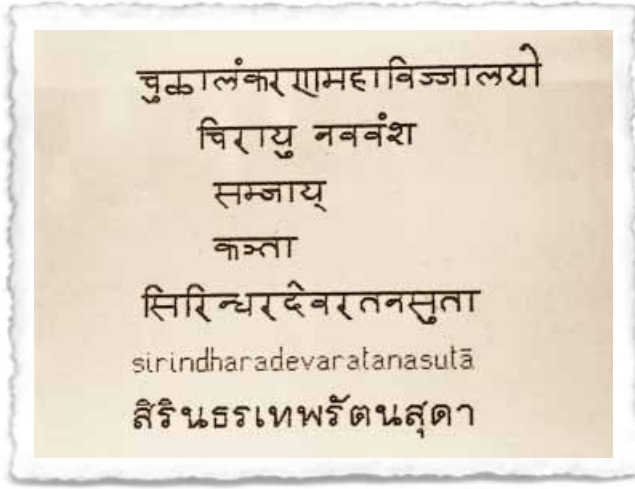 चुळालंकरणमहाविज्जालयो
चिरायु नववंश
सम्जाय्
कञ्ता
सिरिन्धरदेवरतनसुता
sirindharadevaratanasutā
สิรินธรเทพรัตนสุดา